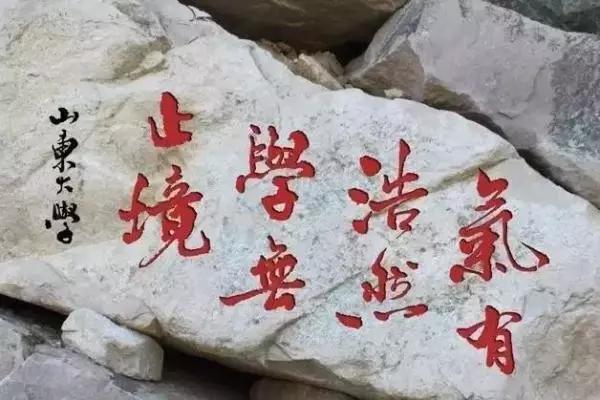 氣有
浩然
學無
止境
山東大學